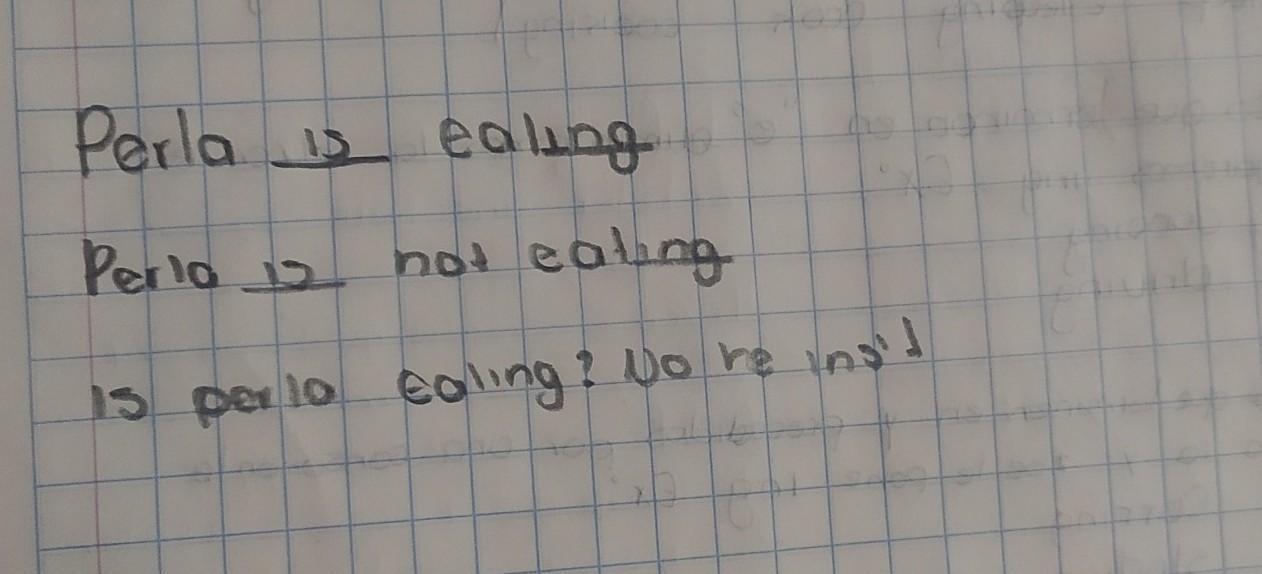 Perla is ealing
Perla is not ealing
is perla ealing? No